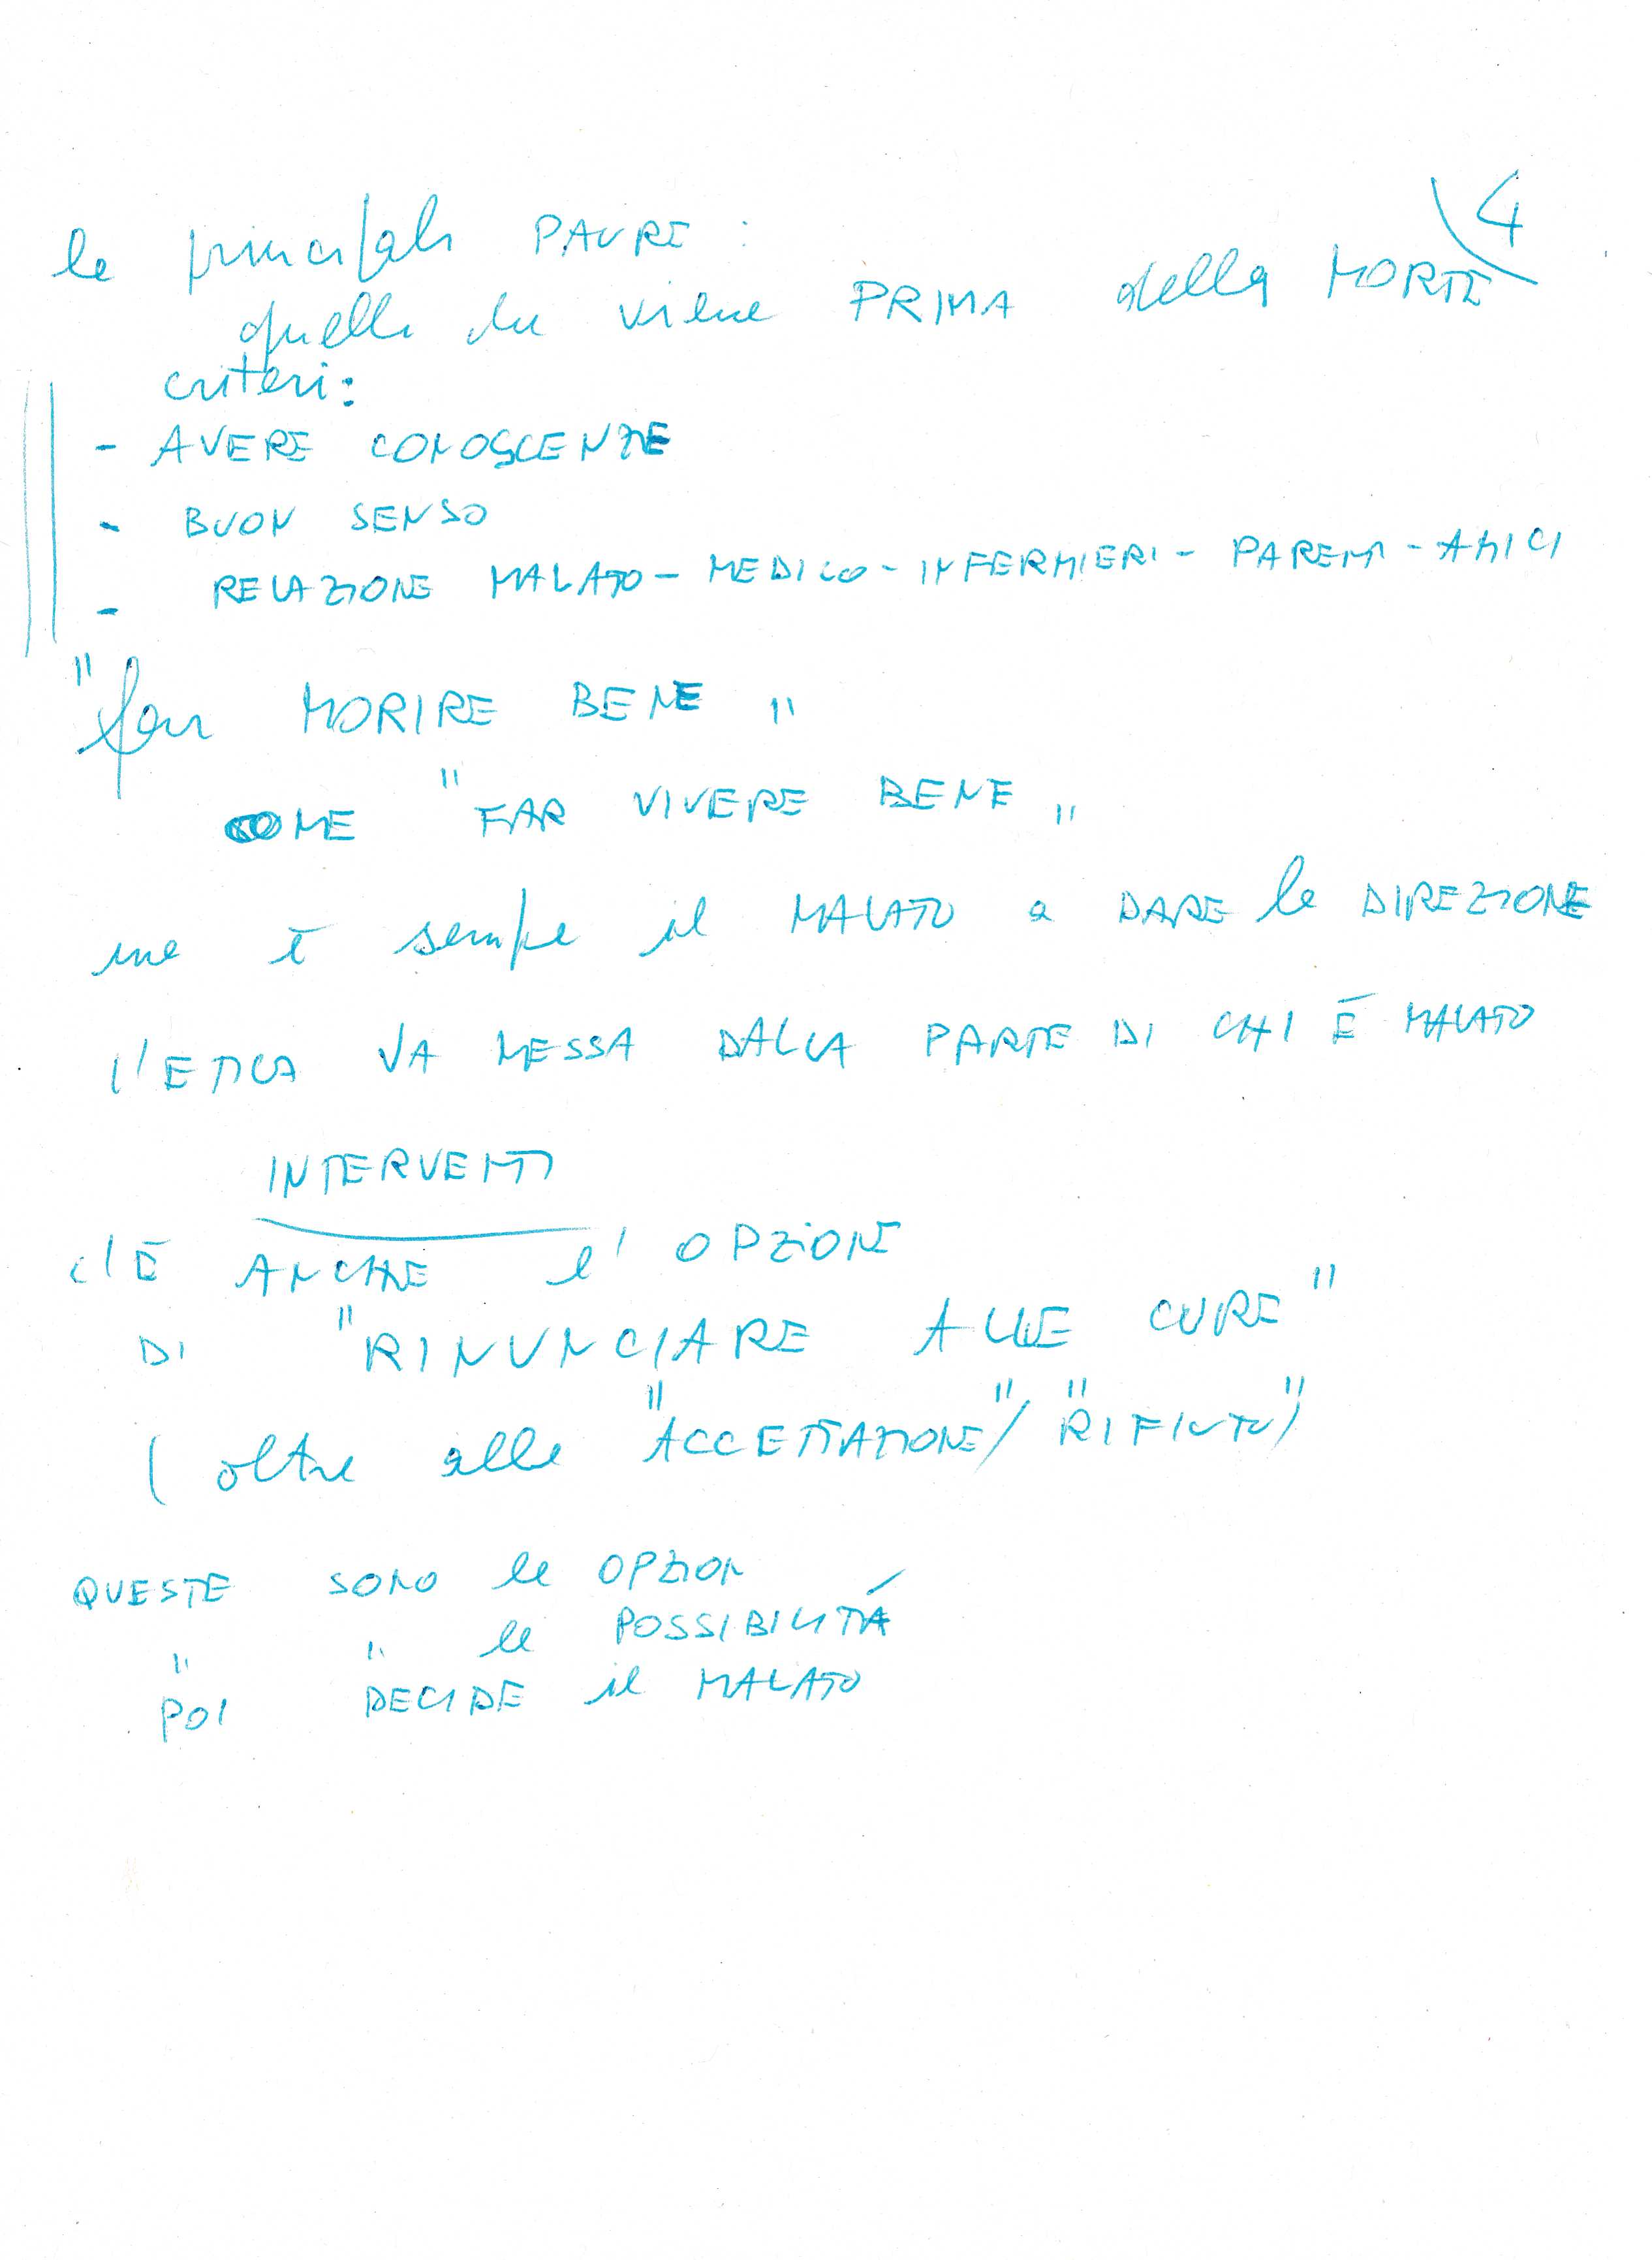 4
le principali PAURE :
quello che viene PRIMA della MORTE
criteri:
- AVERE CONOSCENZE
- BUON SENSO
- RELAZIONE MALATO - MEDICO - INFERMIERI - PARENTI - AMICI
"far MORIRE BENE"
COME "FAR VIVERE BENE"
ma è sempre il MALATO a DARE la DIREZIONE
l'ETICA VA MESSA DALLA PARTE DI CHI È MALATO
INTERVENTI
c'È ANCHE l'OPZIONE
DI "RINUNCIARE ALLE CURE"
(oltre alla "ACCETTAZIONE"/"RIFIUTO")
QUESTE SONO le OPZIONI
" " le POSSIBILITÁ
POI DECIDE il MALATO